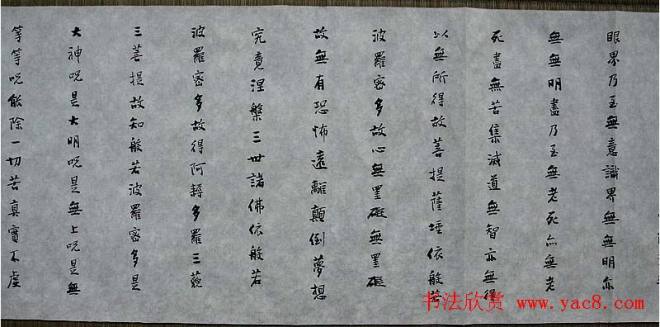 眼界乃至無意識界無無明亦
無無明盡乃至無老死亦無老
死盡無苦集滅道無智亦無得
以無所得故菩提薩埵依般若
波羅密多故心無罣礙無罣礙
故無有恐怖遠離顛倒夢想
究竟涅槃三世諸佛依般若
波羅密多故得阿耨多羅三藐
三菩提故知般若波羅密多是
大神呪是大明呪是無上呪是無
等等呪能除一切苦真實不虛
书法欣赏 www.yac8.com